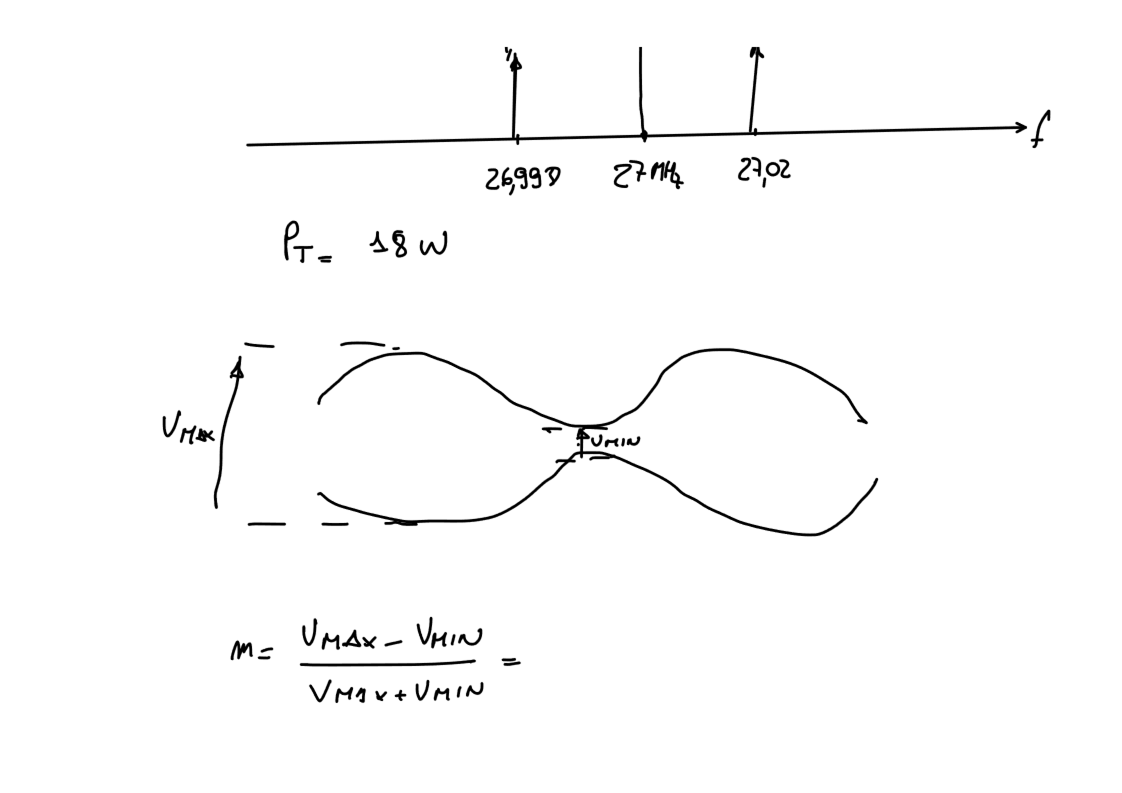 f
26,990 27 MHz 27,02
P_T = 18 W
V_MAX
V_MIN
m = (V_MAX - V_MIN) / (V_MAX + V_MIN) =